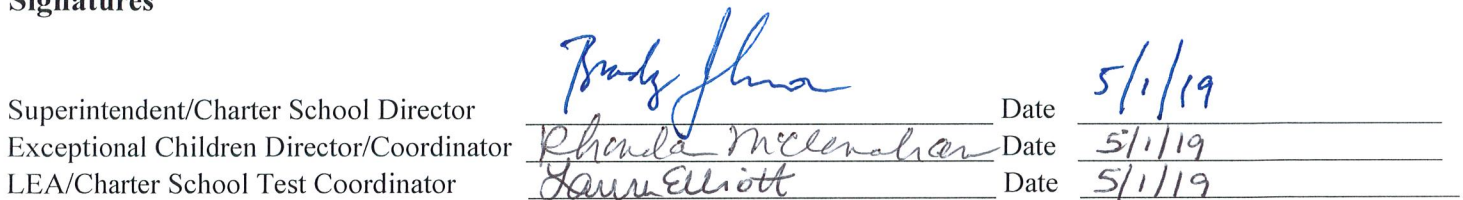 Signatures
Superintendent/Charter School Director Brady Johnson Date 5/1/19
Exceptional Children Director/Coordinator Rhonda McClenahan Date 5/1/19
LEA/Charter School Test Coordinator Laura Elliott Date 5/1/19